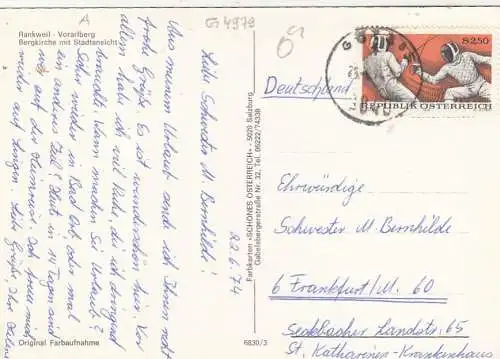 A
G 4979
Rankweil · Vorarlberg
Bergkirche mit Stadtansicht
Liebe Schwester M. Bernhilde!
22.6.74
Aus meinem Urlaub sende ich Ihnen recht
frohe Grüße. Es ist wunderschön hier. Vor
allem habe ich viel Ruhe, die ich dringend
brauchte. Wann machen Sie Urlaub?
Sehr wieder in Bad Orb, oder mal
ein anderes Ziel? Heute in 14 Tagen sind
wir auf der Heimreise. Ich freue mich
wieder auf Zuhause. Liebe Grüße, Ihre
Original Farbaufnahme
6830/3
Farbkarten »SCHÖNES ÖSTERREICH« · 5020 Salzburg
Gabelsbergerstraße Nr. 32, Tel. 06222/74338
S 2.50
REPUBLIK ÖSTERREICH
6840
Deutschland
Ehrwürdige
Schwester M. Bernhilde
6 Frankfurt/M. 60
Seckbacher Landstr. 65
St. Katharinen-Krankenhaus